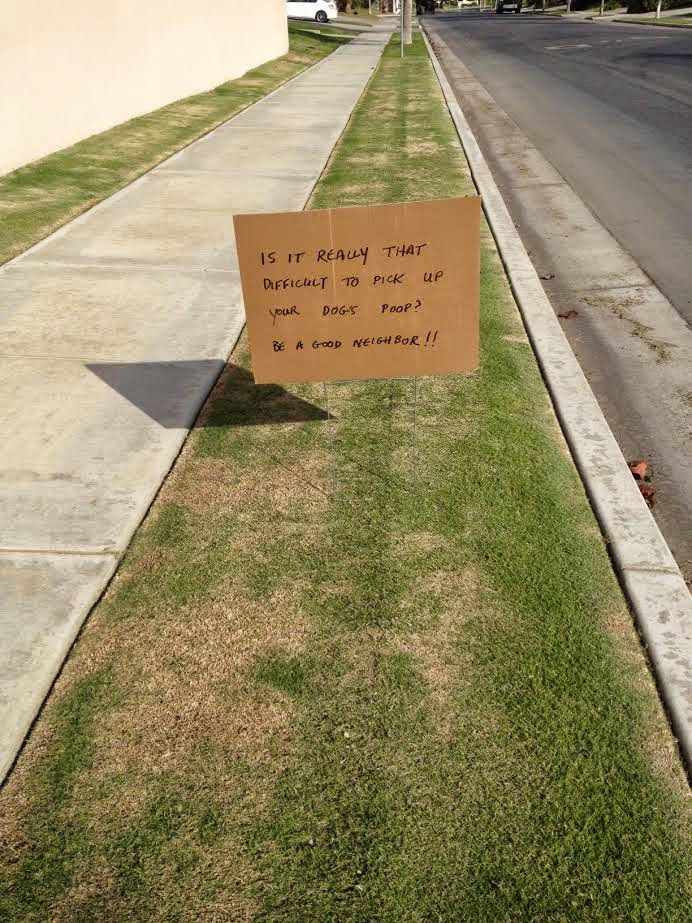 IS IT REALLY THAT
DIFFICULT TO PICK UP
YOUR DOGS POOP?
BE A GOOD NEIGHBOR!!